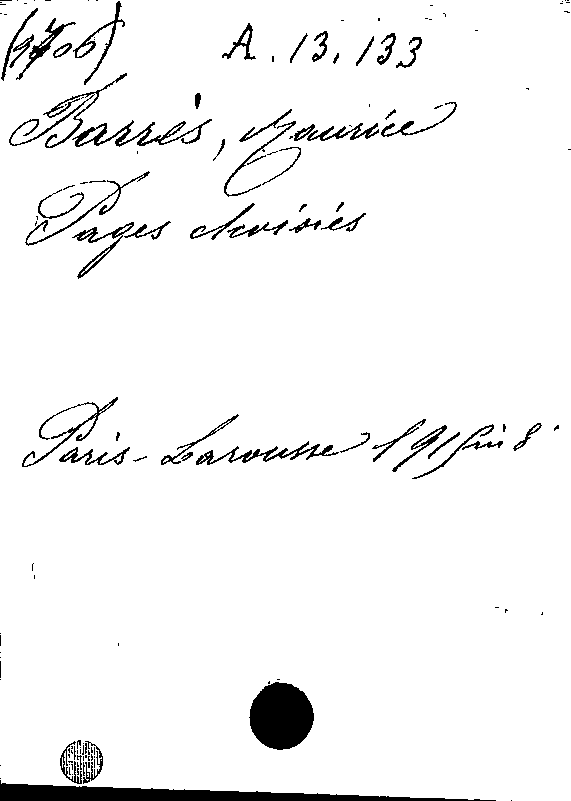 A. 13. 133
Barrès, Maurice
Pages choisies
Paris - Larousse 1915 in 8°